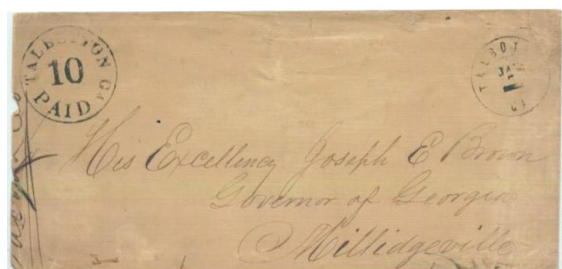 TALBOTTON Ga
10
PAID
TALBOT
JA
GA
His Excellency Joseph E Brown
Governor of Georgia
Millidgeville